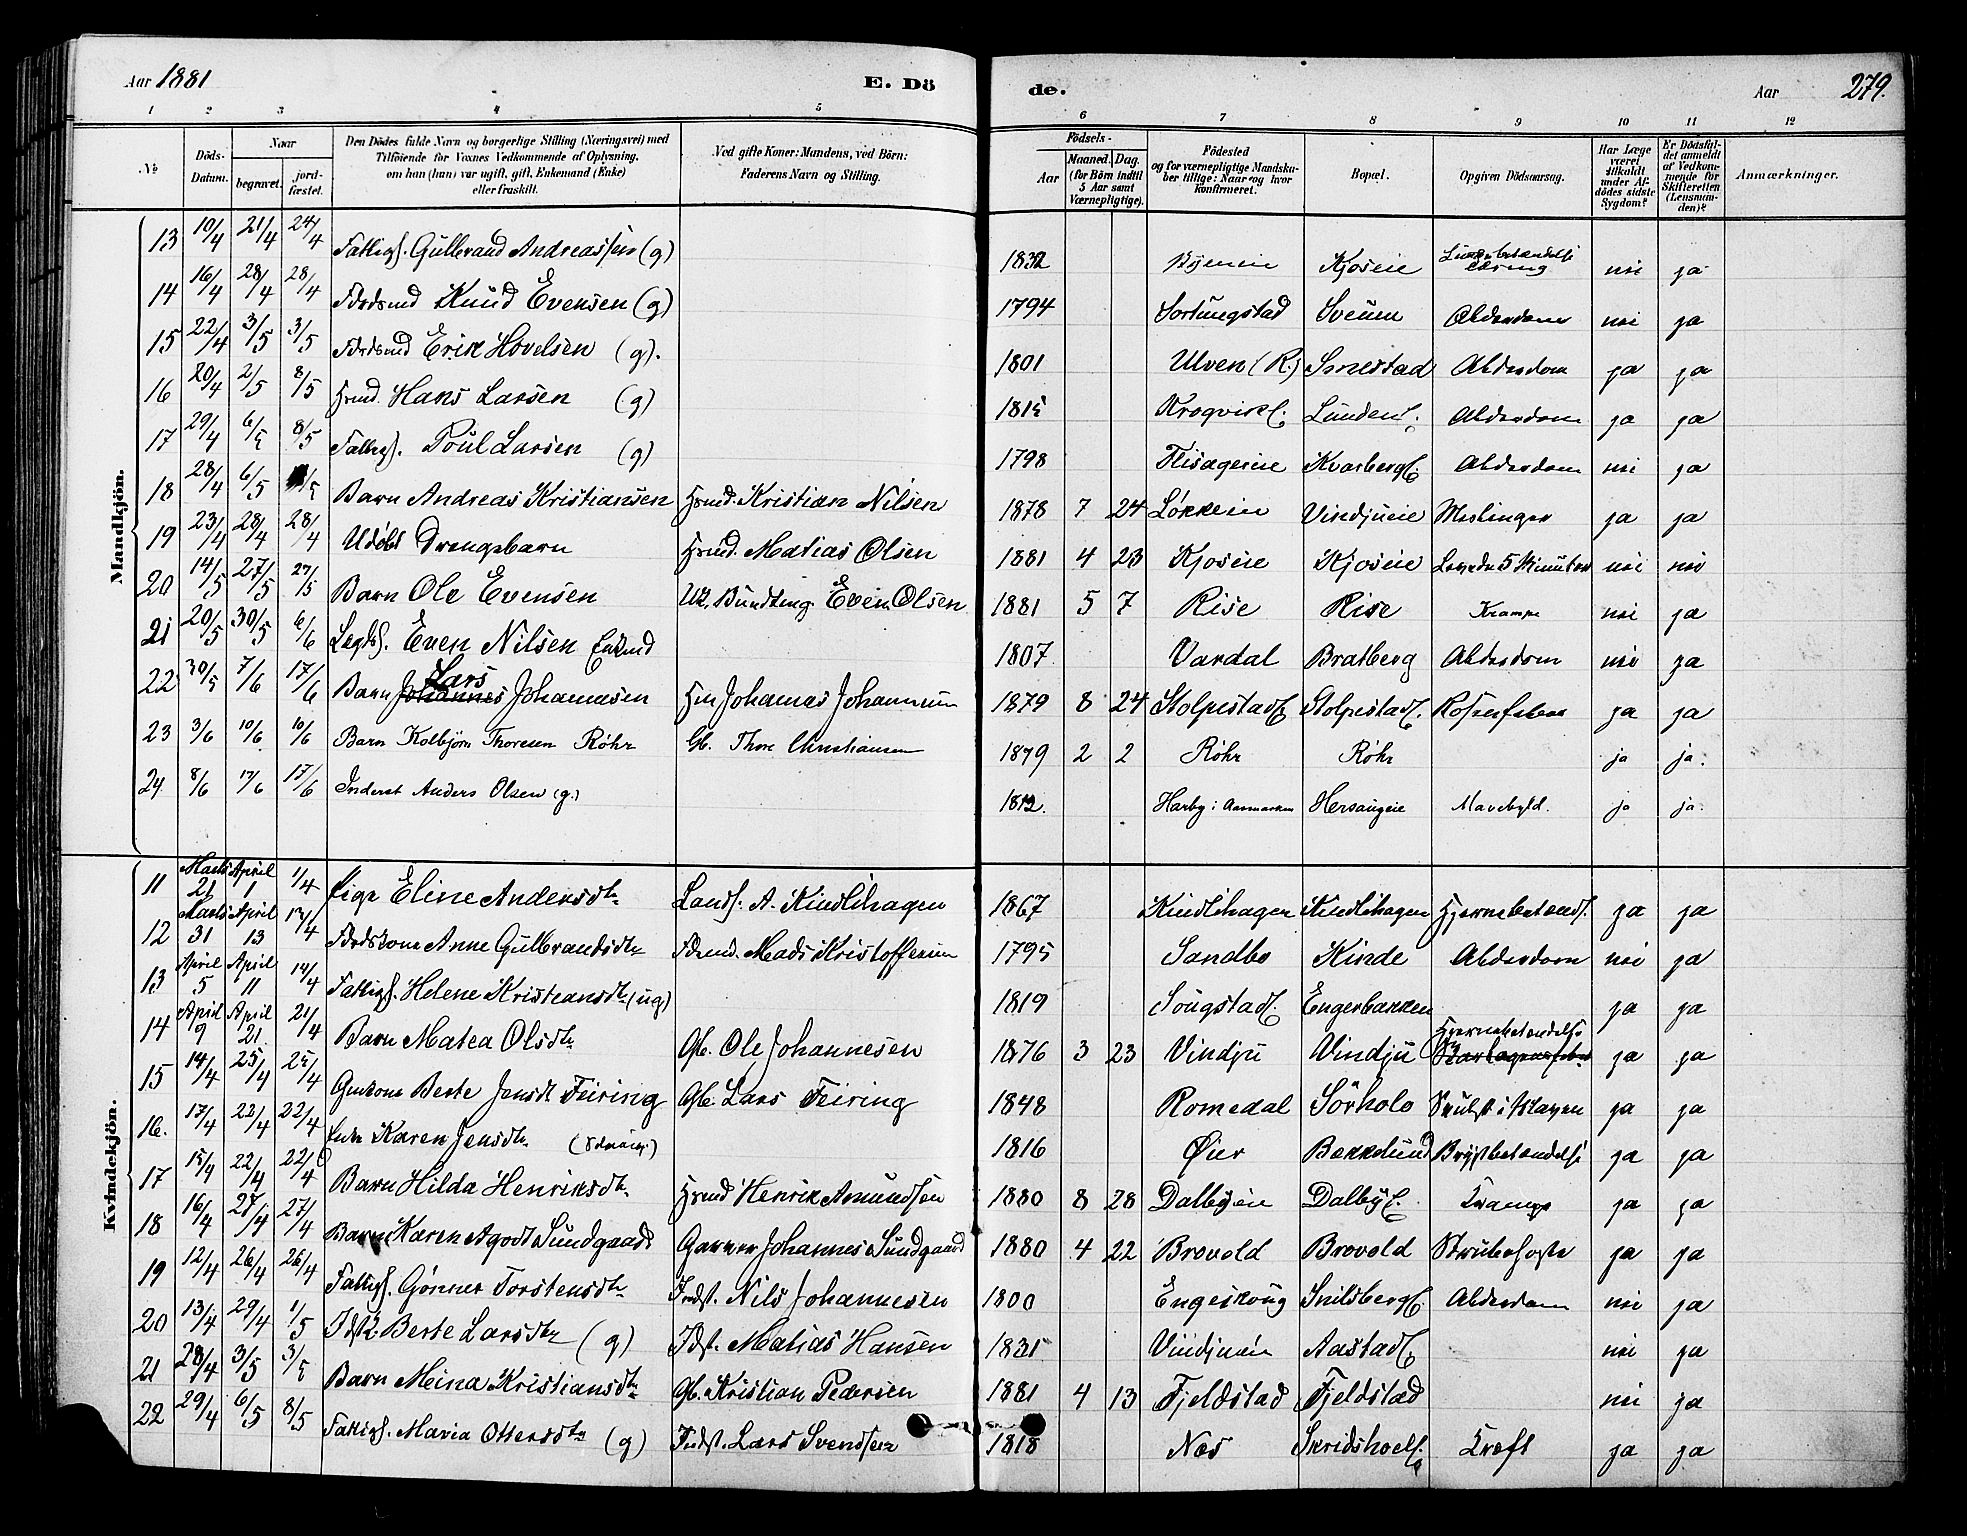 Aar 1881 E. Dö de. Aar 279.
1 2 3 4 5 6 7 8 9 10 11 12
No Döds-Datum. Naar begravet. jord-fæstet. Den Dödes fulde Navn og borgerlige Stilling (Næringsvei) med Tilföiende for Voxnes Vedkommende af Oplysning, om han (hun) var ugift, gift, Enkemand (Enke) eller fraskilt. Ved gifte Koner: Mandens, ved Börn: Faderens Navn og Stilling. Födsels- Aar Maaned. Dag. (for Börn indtil 5 Aar samt Værnepligtige). Födested og for værnepligtige Mandskaber tillige: Naar og hvor konfirmeret. Bopæl. Opgiven Dödsaarsag. Har Læge været tilkaldt under Afdödes sidste Sygdom? Er Dödsfaldet anmeldt af Vedkommende for Skifteretten (Lensmanden)? Anmærkninger.
Mandkjön.
13 10/4 21/4 24/4 Fattigf. Gulbrand Andreassen (g) 1832 Kjoseie nei ja
14 16/4 28/4 28/4 Fdrdsmd Knud Evensen (g) 1794 Sortungstad Sveum Alderdom nei ja
15 22/4 3/5 3/5 Fdrdsmd Erik Hovelsen (g). 1801 Ulven (R.) Smestad Alderdom ja ja
16 20/4 2/5 8/5 Hsmd. Hans Larsen (g) 1815 Krogvikf. Lundenf. Alderdom ja ja
17 29/4 6/5 8/5 Fattigf. Poul Larsen (g) 1798 Flisagereie Kvarbergf. Alderdom nei ja
18 28/4 6/5 /5 Barn Andreas Kristiansen Hsmd. Kristian Nilsen 1878 7 24 Løkkeie Vindjueie Meslinger ja ja
19 23/4 28/4 28/4 Udøbt Drengebarn Hsmd. Matias Olsen 1881 4 23 Kjoseie Kjoseie Levede 5 Minuter nei nei
20 14/5 27/5 27/5 Barn Ole Evensen Bundting Even Olsen 1881 5 7 Rise Rise Krampe nei ja
21 20/5 30/5 6/6 Lægdsf. Even Nilsen Enkmd 1807 Vardal Bratberg Alderdom nei ja
22 30/5 7/6 17/6 Barn Johannes Lars Johannesen Hsm Johannes Johannesen 1879 8 24 Stolpestadf. Stolpestadf. ja ja
23 3/6 10/6 10/6 Barn Kolbjørn Thoresen Røhr Gb. Thore Christiansen 1879 2 2 Røhr Røhr ja ja.
24. 8/6 17/6 17/6 Inderst Anders Olsen (g.) 1812. Harby i Aasmarken Hersaugeie Mavebyld. ja ja.
Kvindekjön.
11 Marts 21 April 1 1/4 Pige Eline Andersdtr. Landh. A. Kindlihagen 1867 Kindlihagen Kindlihagen Hjernebetændf. ja ja
12 Marts 31 April 13 14/4 Fdrdskone Anne Gulbrandsdtr. Fdrmd. Mads Kristoffersen 1795 Sandbo Kinde Alderdom nei ja
13 April 5 April 11 14/4 Fattigf. Helene Kristiansdtr. (ug) 1819 Sougstadf. Engerbakken ja ja
14 April 9 April 21. 21/4 Barn Matea Olsdtr. Gb. Ole Johannesen 1876 3 23 Vindju Vindju Hjernebetændelse ja ja
15 14/4 25/4 25/4 Gmkone Berte Jensdtr Feiring Gb. Lars Feiring 1848 Romedal Sörholo ja ja
16. 17/4 22/4 22/4 Enke Karen Jensdtr. 1816 Øier Bækkelund Brystbetændelse ja ja
17 15/4 22/4 22/4 Barn Hilda Henriksdtr. Hsmd Henrik Amundsen 1880 8 28 Dalbyeie Dalbyf. Krampe ja ja
18 16/4 27/4 27/4 Barn Karen Agodt Sundgaard Garver Johannes Sundgaard 1880 4 22 Brovold Brovold Strubehoste ja ja
19 12/4 26/4 26/4 Fattigf. Gönner Torstensdtr. Indst. Nils Johannesen 1800 Engeskoug Snilsbergf. Alderdom nei ja
20 13/4 29/4 1/5 Idstk. Berte Larsdtr (g) Idst. Matias Hansen 1831 Vindjueie Aastadf. nei ja
21 28/4 3/5 3/5 Barn Meina Kristiansdtr. Gb. Kristian Pedersen 1881 4 13 Fjeldstad Fjeldstad nei ja
22 29/4 6/5 8/5 Fattigf. Maria Ottersdtr (g) Indst. Lars Svendsen 1818 Næs Skridshoelf. Kræft ja ja